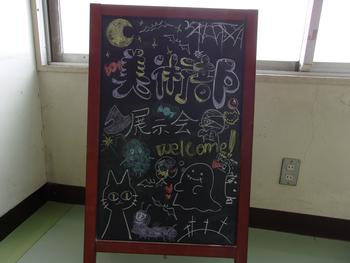 美術部
展示会
welcome!